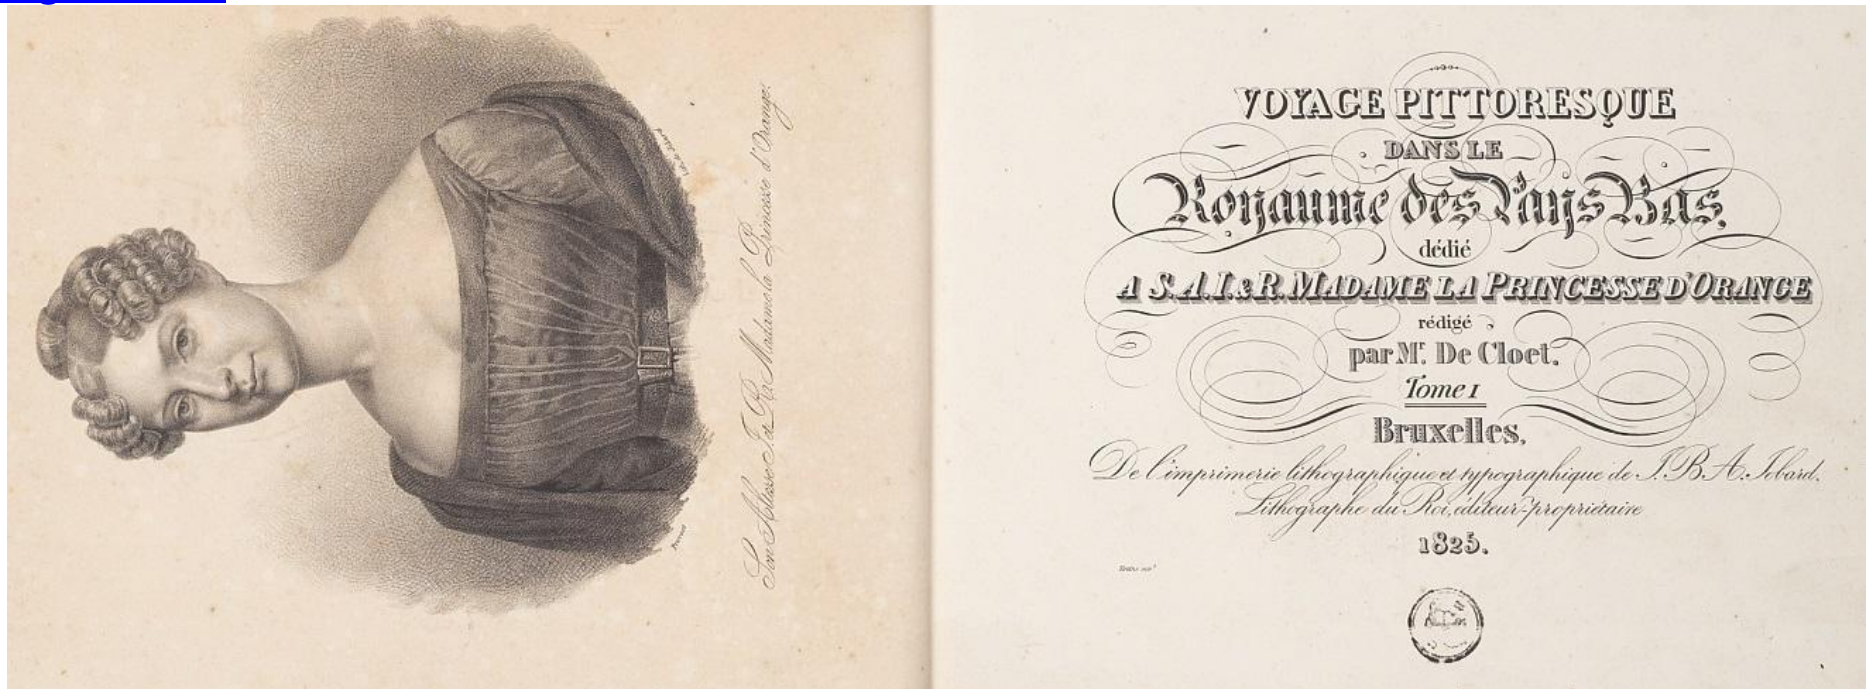 Son Altesse I. & R. Madame la Princesse d'Orange.
VOYAGE PITTORESQUE
DANS LE
Royaume des Pays Bas,
dédié
A S.A.I.&R. MADAME LA PRINCESSE D'ORANGE
rédigé
par Mr. De Cloet.
Tome I
Bruxelles,
De l'imprimerie lithographique et typographique de J. B. A. Jobard.
Lithographe du Roi, éditeur-propriétaire
1825.